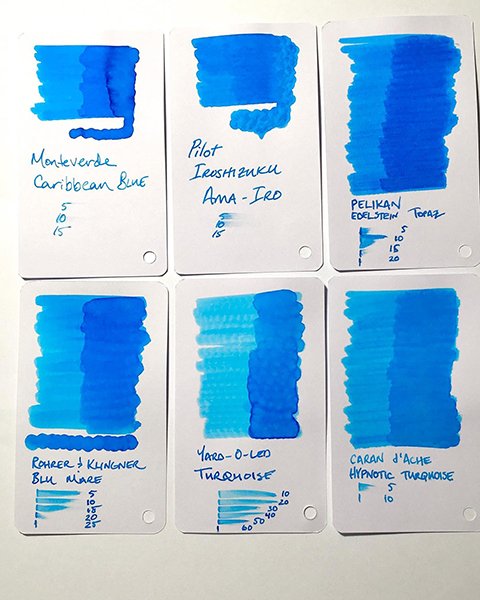 Monteverde
Caribbean Blue
5
10
15
Pilot
Iroshizuku
Ama-Iro
5
10
15
Pelikan
Edelstein Topaz
5
10
15
1 20
Rohrer & Klingner
Blu Mare
5
10
15
20
1 25
Yard-O-Led
Turquoise
10
20
30
40
50
1 60
Caran d'Ache
Hypnotic Turquoise
5
1 10